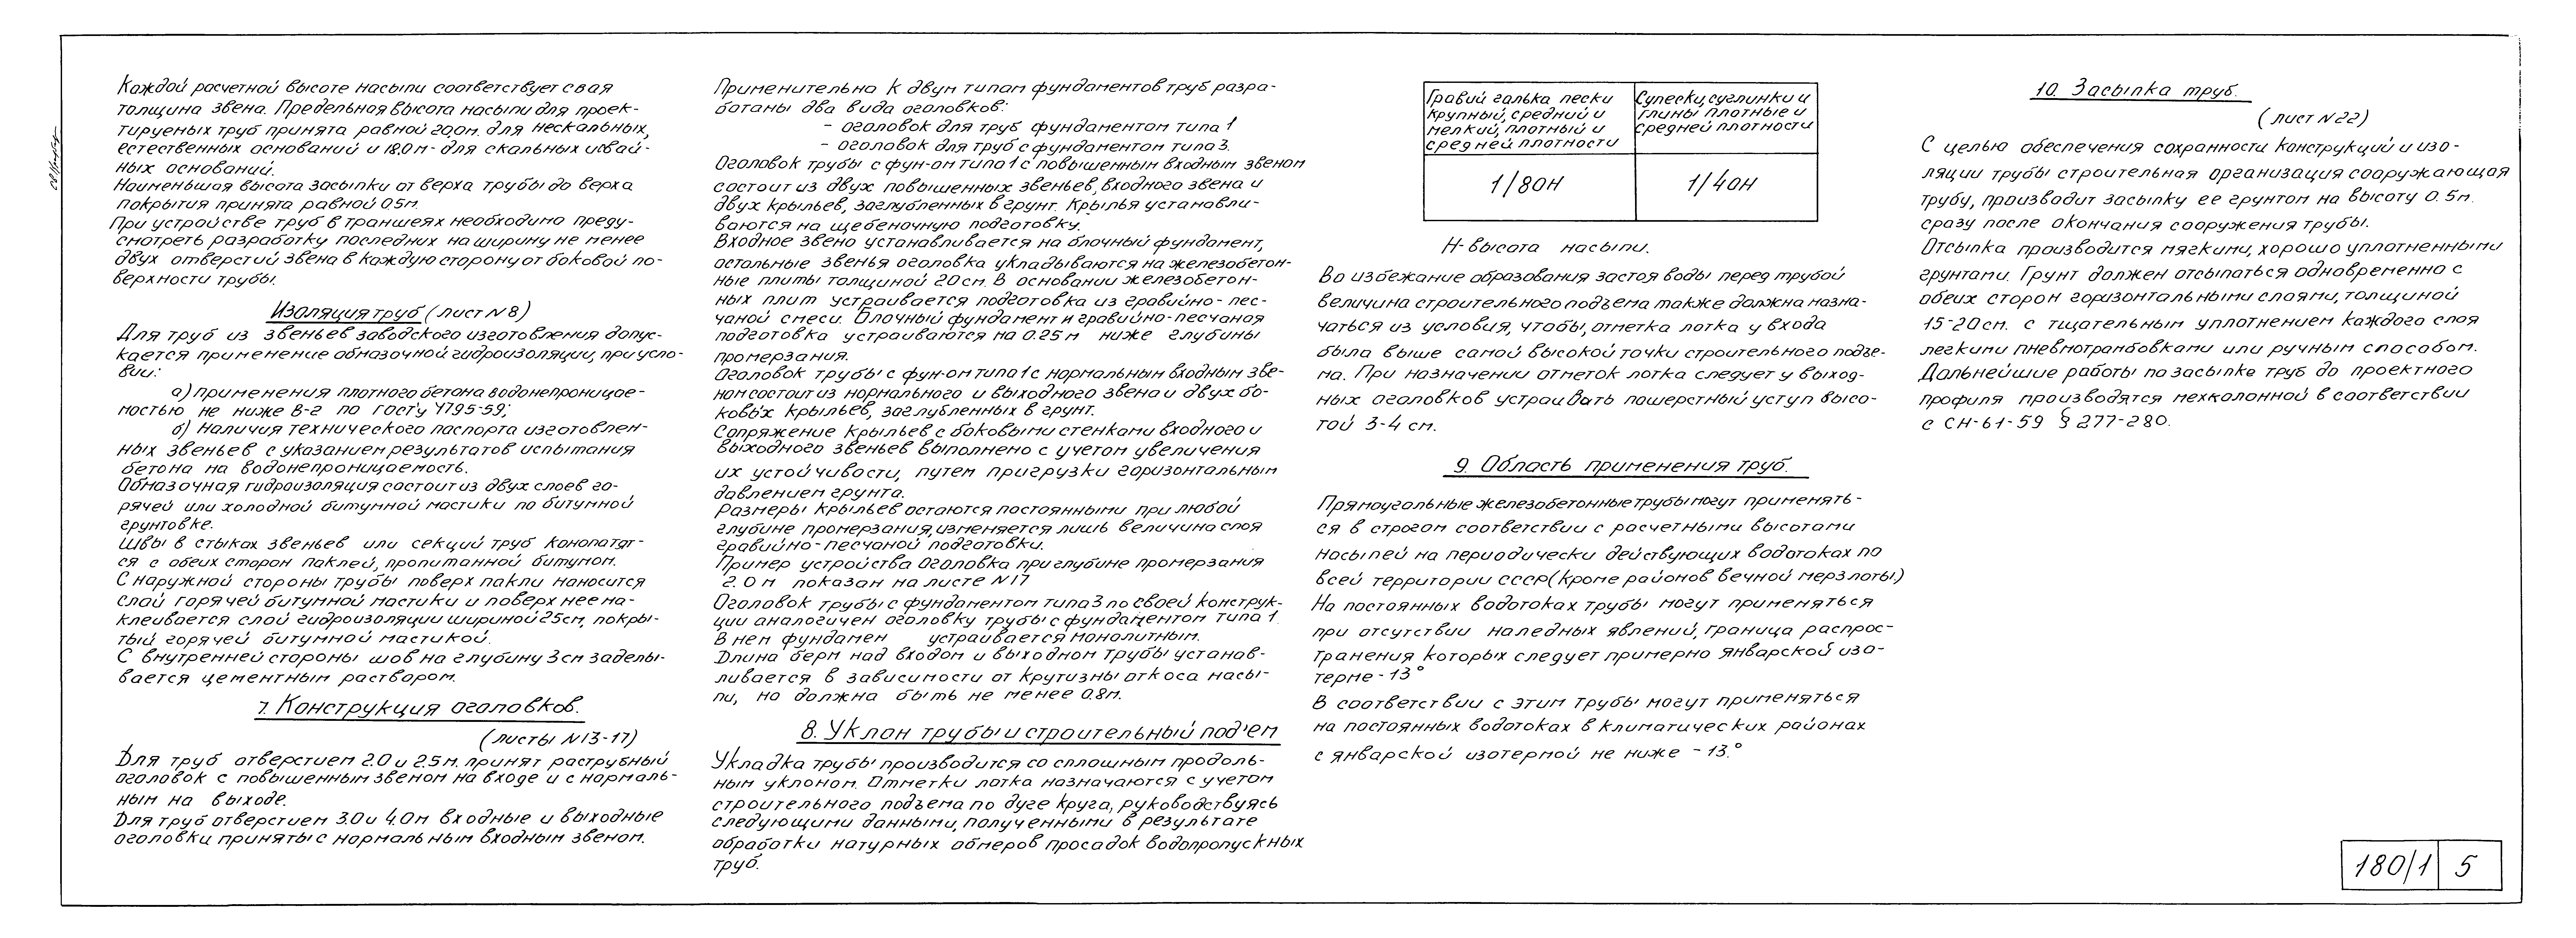 Каждой расчетной высоте насыпи соответствует своя
толщина звена. Предельная высота насыпи для проек-
тируемых труб принята равной 20,0м. для нескальных,
естественных оснований и 18.0м- для скальных и свай-
ных оснований.
Наименьшая высота засыпки от верха трубы до верха
покрытия принята равной 0.5м.
При устройстве труб в траншеях необходимо преду-
смотреть разработку последних на ширину не менее
двух отверстий звена в каждую сторону от боковой по-
верхности трубы.
Изоляция труб (лист N8)
Для труб из звеньев заводского изготовления допус-
кается применение обмазочной гидроизоляции, при усло-
вии:
а) применения плотного бетона водонепроницае-
мостью не ниже В-2 по госту 4795-59;
б) Наличия технического паспорта изготовлен-
ных звеньев с указанием результатов испытания
бетона на водонепроницаемость.
Обмазочная гидроизоляция состоит из двух слоев го-
рячей или холодной битумной мастики по битумной
грунтовке.
Швы в стыках звеньев или секций труб конопатят-
ся с обеих сторон паклей, пропитанной битумом.
С наружной стороны трубы поверх пакли наносится
слой горячей битумной мастики и поверх нее на-
клеивается слой гидроизоляции шириной 25см, покры-
тый горячей битумной мастикой.
С внутренней стороны шов на глубину 3см заделы-
вается цементным раствором.
7. Конструкция оголовков.
(листы N13-17)
Для труб отверстием 2.0 и 2.5м. принят раструбный
оголовок с повышенным звеном на входе и с нормаль-
ным на выходе.
Для труб отверстием 3.0 и 4.0м входные и выходные
оголовки приняты с нормальным входным звеном.
Применительно к двум типам фундаментов труб разра-
ботаны два вида оголовков:
- оголовок для труб фундаментом типа 1
- оголовок для труб с фундаментом типа 3.
Оголовок трубы с фун-ом типа 1 с повышенным входным звеном
состоит из двух повышенных звеньев, входного звена и
двух крыльев, заглубленных в грунт. Крылья устанавли-
ваются на щебеночную подготовку.
Входное звено устанавливается на блочный фундамент,
остальные звенья оголовка укладываются на железобетон-
ные плиты толщиной 20см. В основании железобетон-
ных плит устраивается подготовка из гравийно-пес-
чаной смеси. Блочный фундамент и гравийно-песчаная
подготовка устраиваются на 0.25м ниже глубины
промерзания.
Оголовок трубы с фун-ом типа 1 с нормальным входным зве-
ном состоит из нормального и выходного звена и двух бо-
ковых крыльев, заглубленных в грунт.
Сопряжение крыльев с боковыми стенками входного и
выходного звеньев выполнено с учетом увеличения
их устойчивости, путем пригрузки горизонтальным
давлением грунта.
Размеры крыльев остаются постоянными при любой
глубине промерзания, изменяется лишь величина слоя
гравийно-песчаной подготовки.
Пример устройства оголовка при глубине промерзания
2.0м показан на листе N17
Оголовок трубы с фундаментом типа 3 по своей конструк-
ции аналогичен оголовку трубы с фундаментом типа 1.
В нем фундамен устраивается монолитным.
Длина берм над входом и выходом трубы устанав-
ливается в зависимости от крутизны откоса насы-
пи, но должна быть не менее 0.8м.
8. Уклон трубы и строительный под'ем
Укладка трубы производится со сплошным продоль-
ным уклоном. Отметки лотка назначаются с учетом
строительного подъема по дуге круга, руководствуясь
следующими данными, полученными в результате
обработки натурных обмеров просадок водопропускных
труб.
Гравий галька пески
крупный, средний и
мелкий, плотный и
средней плотности
Супески, суглинки и
глины плотные и
средней плотности
1/80Н
1/40Н
Н-высота насыпи.
Во избежание образования застоя воды перед трубой
величина строительного подъема также должна назна-
чаться из условия, чтобы, отметка лотка у входа
была выше самой высокой точки строительного подъе-
ма. При назначении отметок лотка следует у выход-
ных оголовков устраивать пошерстный уступ высо-
той 3-4 см.
9. Область применения труб.
Прямоугольные железобетонные трубы могут применять-
ся в строгом соответствии с расчетными высотами
насыпей на периодически действующих водотоках по
всей территории СССР (кроме районов вечной мерзлоты)
На постоянных водотоках трубы могут применяться
при отсутствии наледных явлений, граница распрос-
транения которых следует примерно январской изо-
терме -13°
В соответствии с этим трубы могут применяться
на постоянных водотоках в климатических районах
с январской изотермой не ниже -13.°
10. Засыпка труб.
(лист N22)
С целью обеспечения сохранности конструкций и изо-
ляции трубы строительная организация сооружающая
трубу, производит засыпку ее грунтом на высоту 0.5м.
сразу после окончания сооружения трубы.
Отсыпка производится мягкими, хорошо уплотненными
грунтами. Грунт должен отсыпаться одновременно с
обеих сторон горизонтальными слоями, толщиной
15-20см. с тщательным уплотнением каждого слоя
легкими пневмотрамбовками или ручным способом.
Дальнейшие работы по засыпке труб до проектного
профиля производятся мехколонной в соответствии
с СН-61-59 § 277-280.
180/1 5